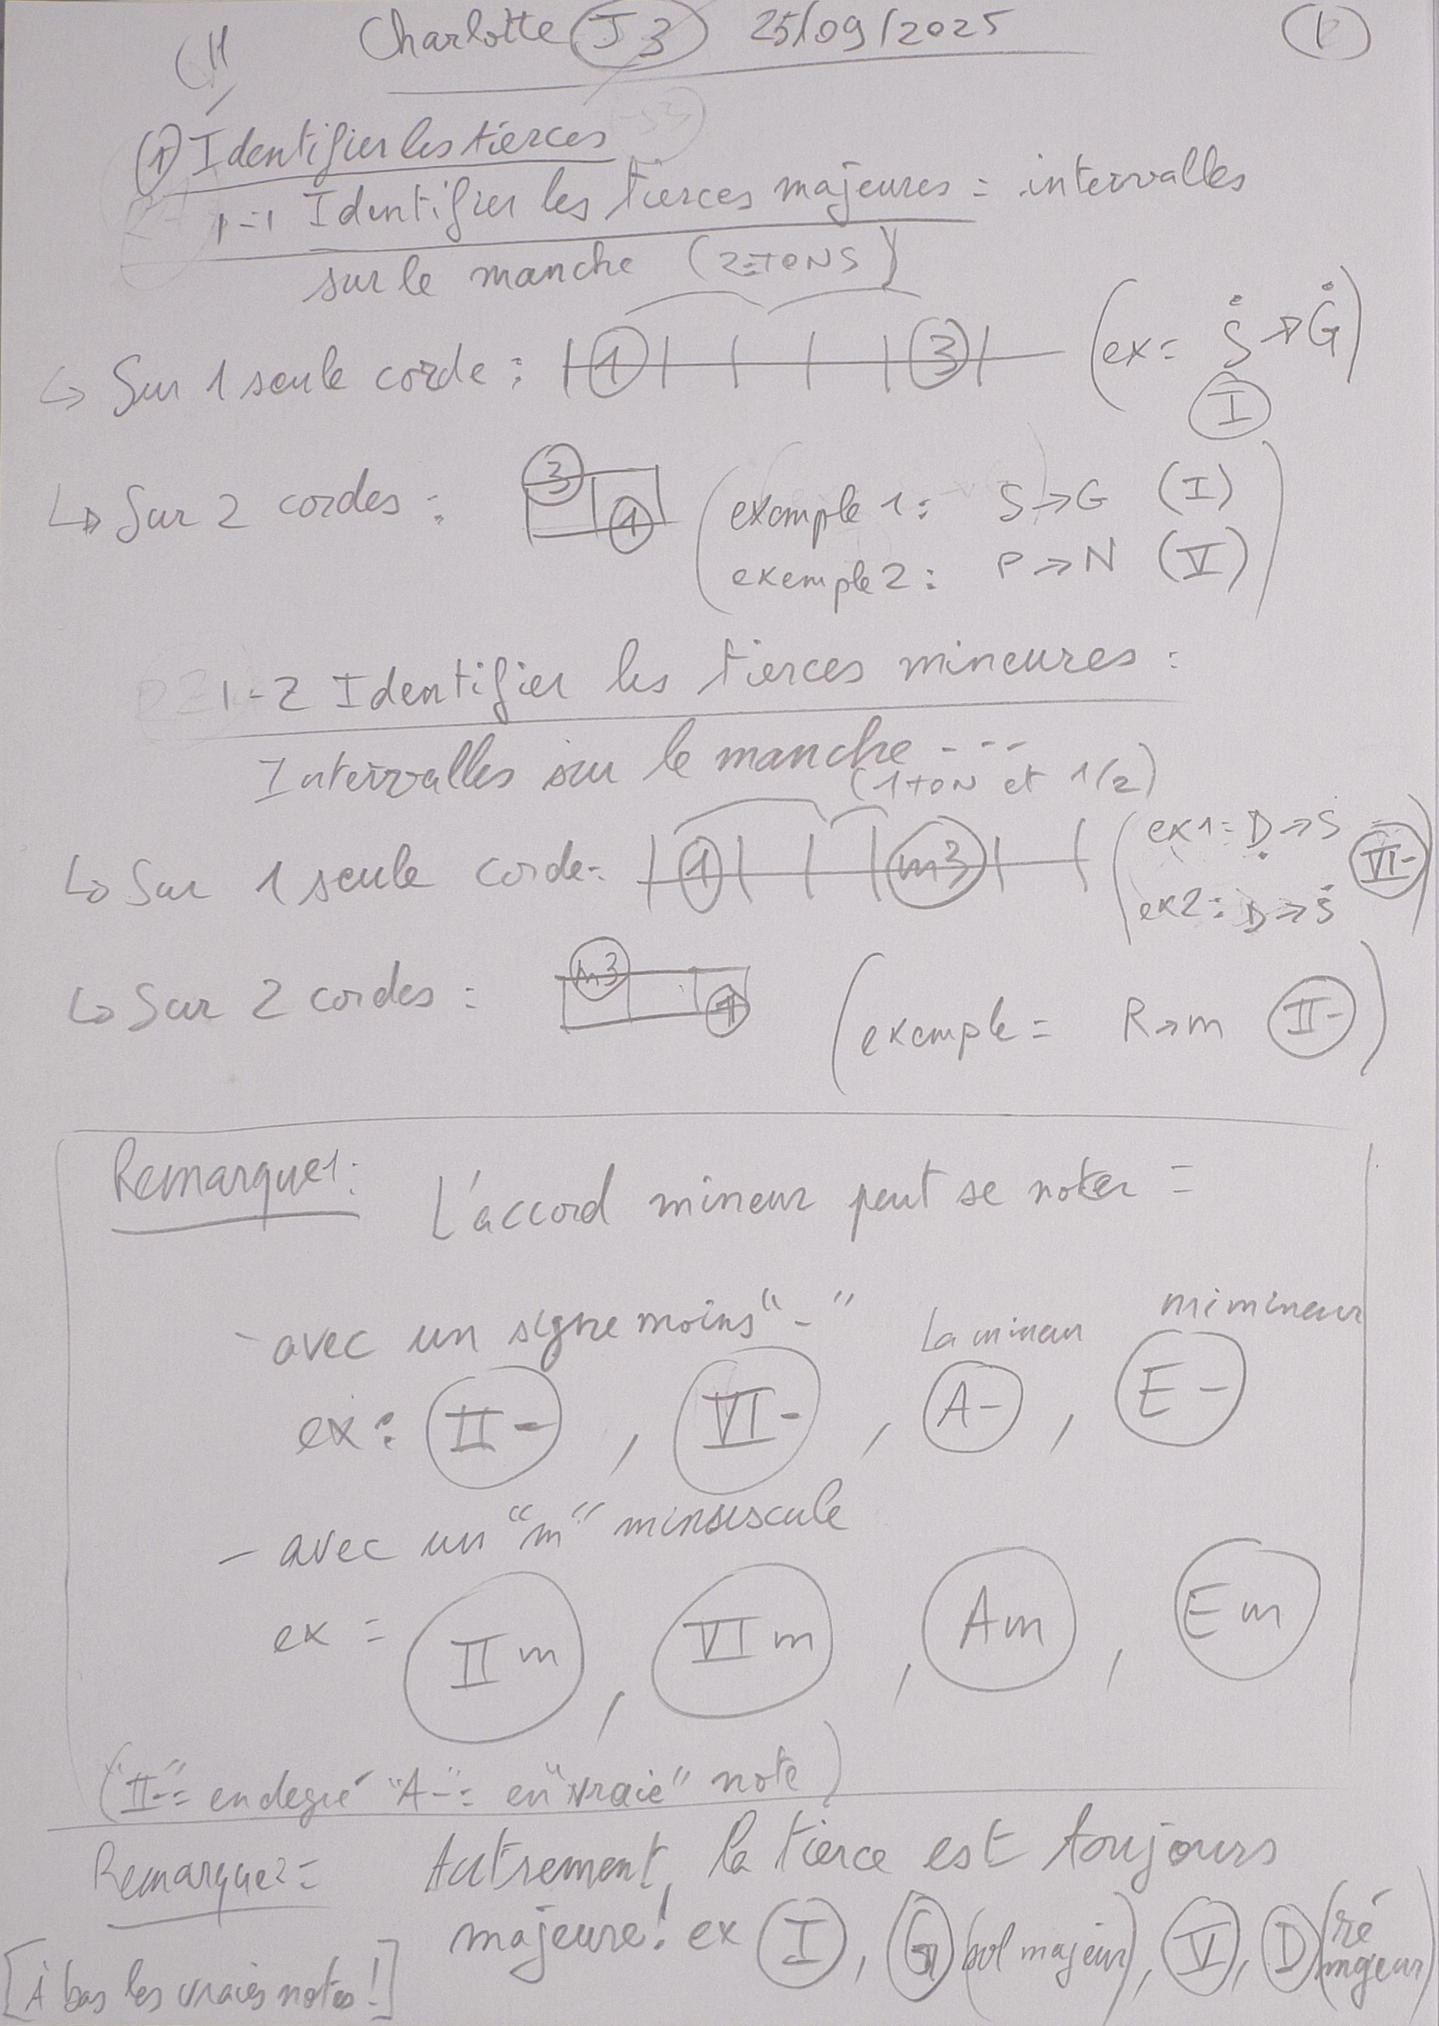 CH Charlotte J3 25/09/2025 1
(1) Identifier les tierces
1-1 Identifier les tierces majeures = intervalles
sur le manche (2 TONS)
↳ Sur 1 seule corde : 1 3 (ex = Ṡ → Ġ)
I
↳ Sur 2 cordes : 3 1
(exemple 1 : S → G (I)
exemple 2 : P → N (V))
1-2 Identifier les tierces mineures :
Intervalles sur le manche ---
(1 TON et 1/2)
↳ Sur 1 seule corde : 1 m3 (ex1 = Ḍ → S VI-
ex2 : D → Ṡ)
↳ Sur 2 cordes : m3 1 (exemple = R → m II-)
Remarque 1 : L'accord mineur peut se noter =
- avec un signe moins "-" La mineur mi mineur
ex : II- , VI- , A- , E-
- avec un "m" minsuscule
ex = IIm , VIm , Am , Em
("II-" = en degré "A-" = en "vraie" note)
Remarque 2 = Autrement, la tierce est toujours
majeure ! ex I , G (sol majeur), V , D (ré majeur)
[À bas les vraies notes !]